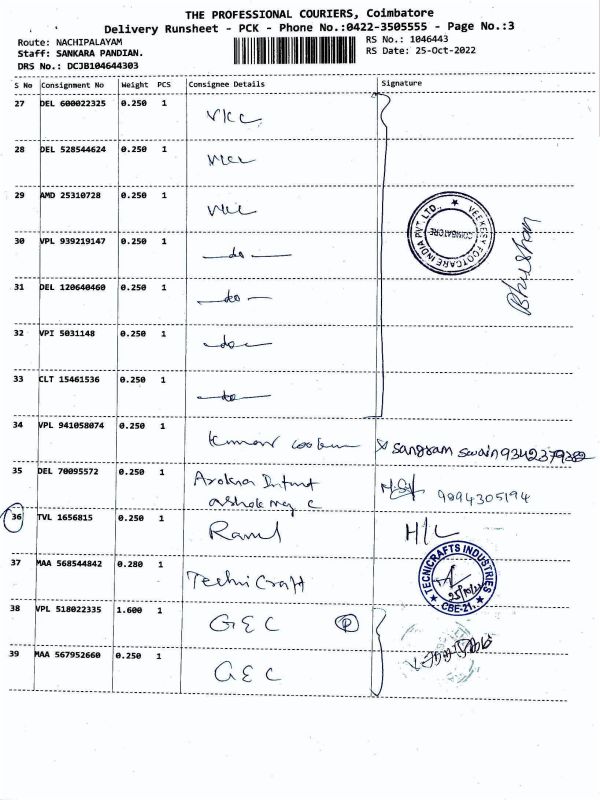 THE PROFESSIONAL COURIERS, Coimbatore
Delivery Runsheet - PCK - Phone No.:0422-3505555 - Page No.:3
Route: NACHIPALAYAM
RS No.: 1046443
Staff: SANKARA PANDIAN.
RS Date: 25-Oct-2022
DRS No.: DCJB104644303
S No Consignment No Weight PCS Consignee Details Signature
27 DEL 600022325 0.250 1 VKC
28 DEL 528544624 0.250 1
29 AMD 25310728 0.250 1
VEEKESY FOOTCARE INDIA PVT. LTD.,
COIMBATORE
30 VPL 939219147 0.250 1 do
31 DEL 120640460 0.250 1 do
32 VPI 5031148 0.250 1 do
33 CLT 15461536 0.250 1 do
34 VPL 941058074 0.250 1 Sangram Swain 9342379382
35 DEL 70095572 0.250 1 9094305194
36 TVL 1656815 0.250 1 H/L
37 MAA 568544842 0.280 1 Techni Craft
TECNICRAFTS INDUSTRIES
CBE-21.
38 VPL 518022335 1.600 1 GEC P
39 MAA 567952660 0.250 1 GEC